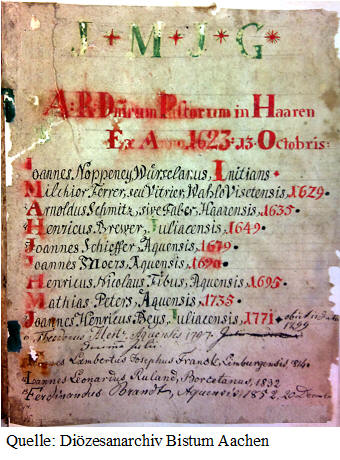 J * M * J * G *
A: R: Dnorum Pastorum in Haaren
Ex Anno 1623: 13. Octobris:
Joannes Noppeney, Würselanus, Initians
Milchior Ferrer, seu Vitrier, Wahlo Visetensis, 1629.
Arnoldus Schmitz, sive Fabor Haarensis, 1635
Henricus Brewer, Juliacensis, 1649
Joannes Schieffer, Aquensis, 1679
Joannes Moers, Aquensis, 1690
Henricus Nicolaus Tibus, Aquensis, 1695
Mathias Peters, Aquensis, 1735
Joannes Henricus Beys, Juliacensis, 1771 obiit
1799
Theodorus Aquensis 1797.
Lambertus Josephus Franck, Limburgensis 814
Joannes Leonardus Ruland, Borcetanus, 1832
Ferdinandus Brandt, Aquensis 1852, 20
Quelle: Diözesanarchiv Bistum Aachen